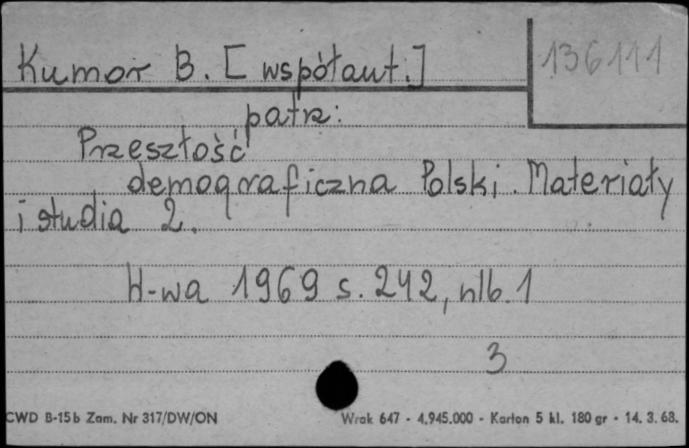 Kumor B. [współaut.]
136111
patrz:
Przeszłość
demograficzna Polski. Materiały
i studia 2.
W-wa 1969 s. 242, nlb. 1
3
CWD B-15b Zam. Nr 317/DW/ON
Wrak 647 - 4.945.000 - Karton 5 kl. 180 gr - 14. 3. 68.